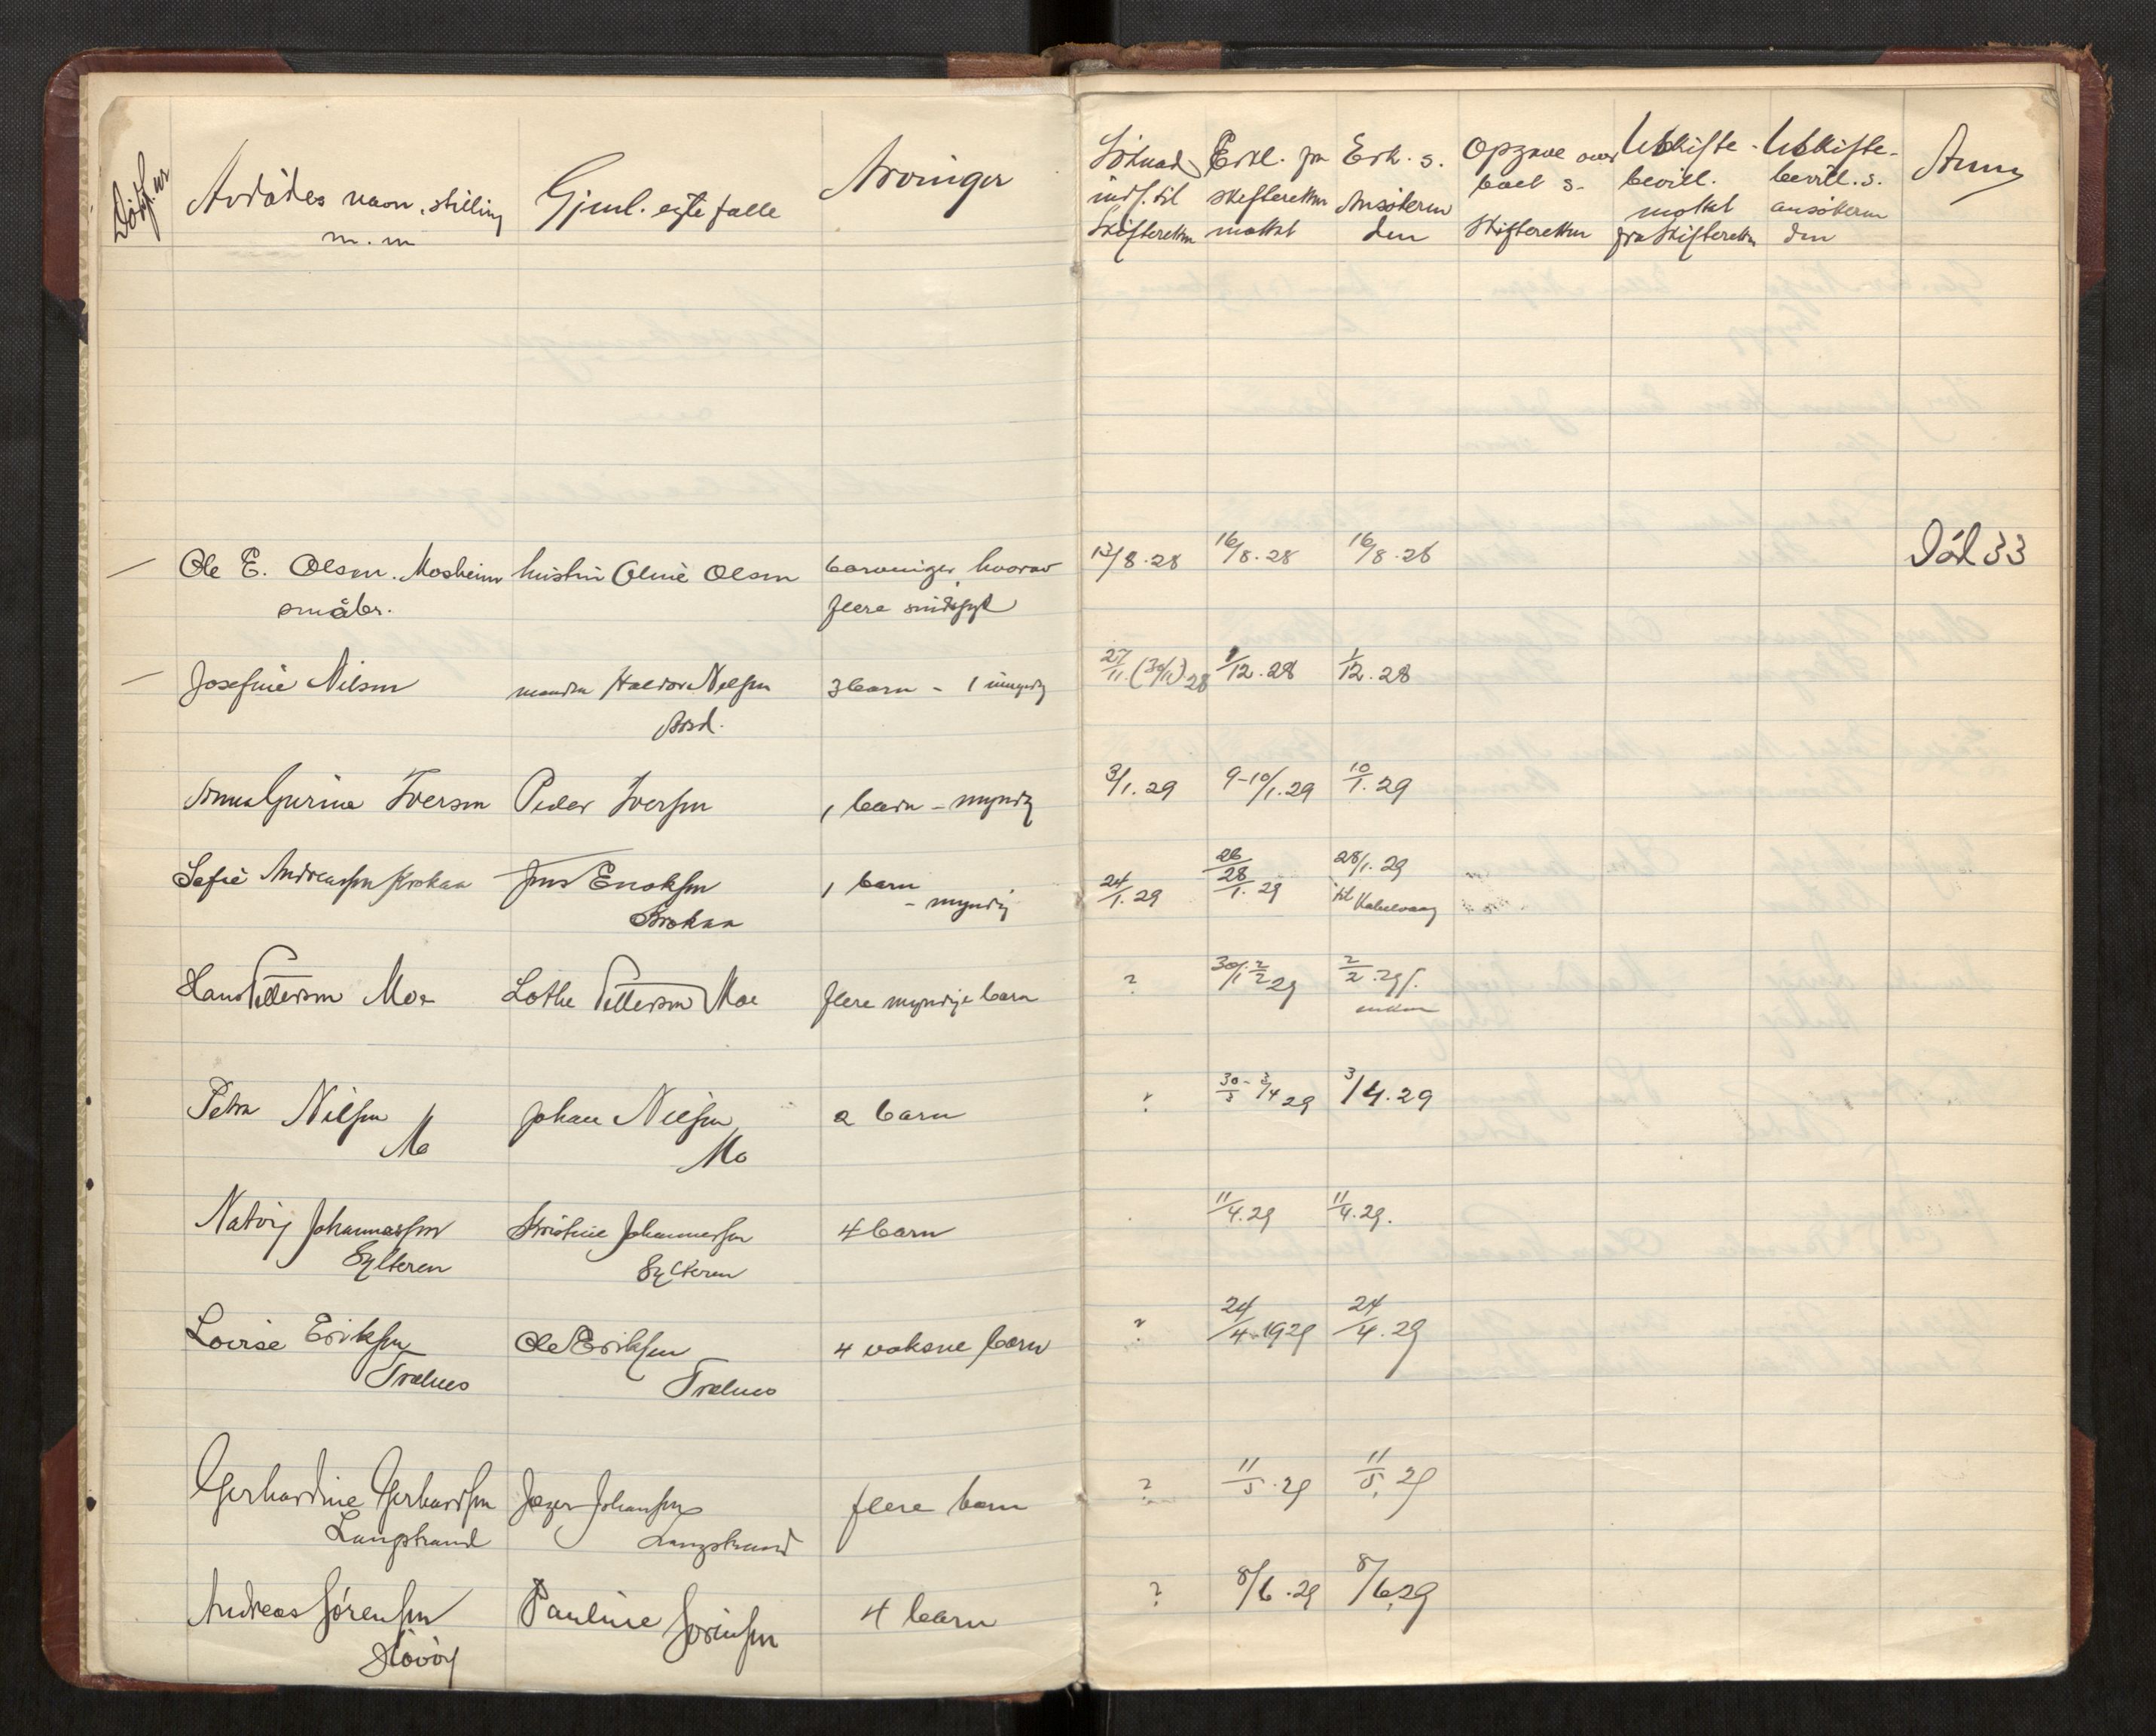 Avdödes navn, stilling
m.m
Gjenl. egtefælle
Arvinger
Söknad
inds. til
Skifteretten
Erkl. fra
skifteretten
mottat
Erk. s.
Ansökeren
den
Opgave over
boet s.
Skifteretten
Utskifte-
bevill.
mottat
fra Skifteretten
Utskifte-
bevill. s.
ansökeren
den
Anm
Ole E. Olsen. Mosheim hustru Oline Olsen hvorav 13/8.28 16/8.28 16/8.28 Död 33
småbr. flere sindssyk
Josefine Nilsen manden Haldor Nilsen 3 barn - 1 umyndig 27/11 (30/11).28 1/12.28 1/12.28
Anna Gurine Iversen Peder Iversen 1 barn - myndig 3/1.29 9-10/1.29 10/1.29
Sofie Andreassen Krokaa Jens Enoksen 1 barn 24/1.29 26/28/1.29 28/1.29
Krokaa - myndig til Kabelvaag
Hans Pettersen Moe Lothe Pettersen Moe flere myndige barn ? 30/1 2/2 29 2/2.29
enken
Petra Nilsen Johan Nilsen 2 barn ? 30/3-3/4 29 3/4.29
Mo Mo
Natvig Johannessen Kristine Johannessen 4 barn 11/4.29 11/4.29.
Sylteren Sylteren
Lovise Eriksen Ole Eriksen 4 voksne barn ? 24/4.1929 24/4.29
Trælnes Trælnes
Gerhardine Gerhardsen Jæger Johansen flere barn ? 11/5.29 11/5.29
Langstrand Langstrand
Andreas Sörensen Pauline Sörensen 4 barn ? 8/6.29 8/6.29